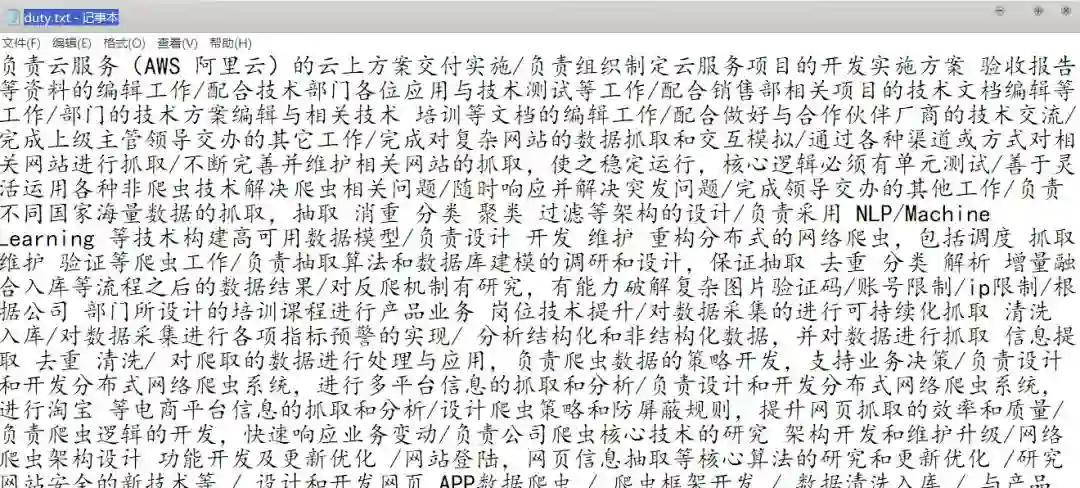 duty.txt - 记事本
文件(F) 编辑(E) 格式(O) 查看(V) 帮助(H)
负责云服务（AWS 阿里云）的云上方案交付实施/负责组织制定云服务项目的开发实施方案 验收报告
等资料的编辑工作/配合技术部门各位应用与技术测试等工作/配合销售部相关项目的技术文档编辑等
工作/部门的技术方案编辑与相关技术 培训等文档的编辑工作/配合做好与合作伙伴厂商的技术交流/
完成上级主管领导交办的其它工作/完成对复杂网站的数据抓取和交互模拟/通过各种渠道或方式对相
关网站进行抓取/不断完善并维护相关网站的抓取，使之稳定运行，核心逻辑必须有单元测试/善于灵
活运用各种非爬虫技术解决爬虫相关问题/随时响应并解决突发问题/完成领导交办的其他工作/负责
不同国家海量数据的抓取，抽取 消重 分类 聚类 过滤等架构的设计/负责采用 NLP/Machine
Learning 等技术构建高可用数据模型/负责设计 开发 维护 重构分布式的网络爬虫，包括调度 抓取
维护 验证等爬虫工作/负责抽取算法和数据库建模的调研和设计，保证抽取 去重 分类 解析 增量融
合入库等流程之后的数据结果/对反爬机制有研究，有能力破解复杂图片验证码/账号限制/ip限制/根
据公司 部门所设计的培训课程进行产品业务 岗位技术提升/对数据采集的进行可持续化抓取 清洗
入库/对数据采集进行各项指标预警的实现/ 分析结构化和非结构化数据，并对数据进行抓取 信息提
取 去重 清洗/ 对爬取的数据进行处理与应用，负责爬虫数据的策略开发，支持业务决策/负责设计
和开发分布式网络爬虫系统，进行多平台信息的抓取和分析/负责设计和开发分布式网络爬虫系统，
进行淘宝 等电商平台信息的抓取和分析/设计爬虫策略和防屏蔽规则，提升网页抓取的效率和质量/
负责爬虫逻辑的开发，快速响应业务变动/负责公司爬虫核心技术的研究 架构开发和维护升级/网络
爬虫架构设计 功能开发及更新优化 /网站登陆，网页信息抽取等核心算法的研究和更新优化 /研究
网站安全的新技术等 / 设计和开发网页 APP数据爬虫 / 爬虫框架开发 / 数据清洗入库 / 与产品